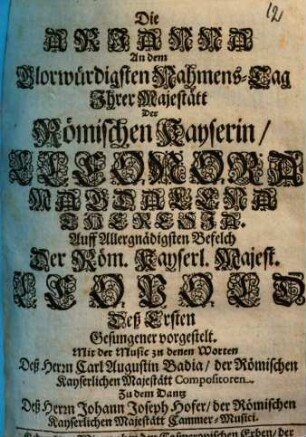 12
Die
ARIANNA
An dem
Glorwürdigsten Nahmens-Tag
Ihrer Majestätt
Der
Römischen Kayserin/
ELEONORA
MAGDALENA
THERESIA.
Auff Allergnädigsten Befelch
Der Röm. Kayserl. Majest.
LEOPOLD
Deß Ersten
Gesungener vorgestelt.
Mit der Music zu denen Worten
Deß Herrn Carl Augustin Badia/ der Römischen
Kayserlichen Majestätt Compositoren.
Zu dem Dantz
Deß Herrn Johann Joseph Hofer/ der Römischen
Kayserlichen Majestätt Cammer-Musici.
Erben/ der